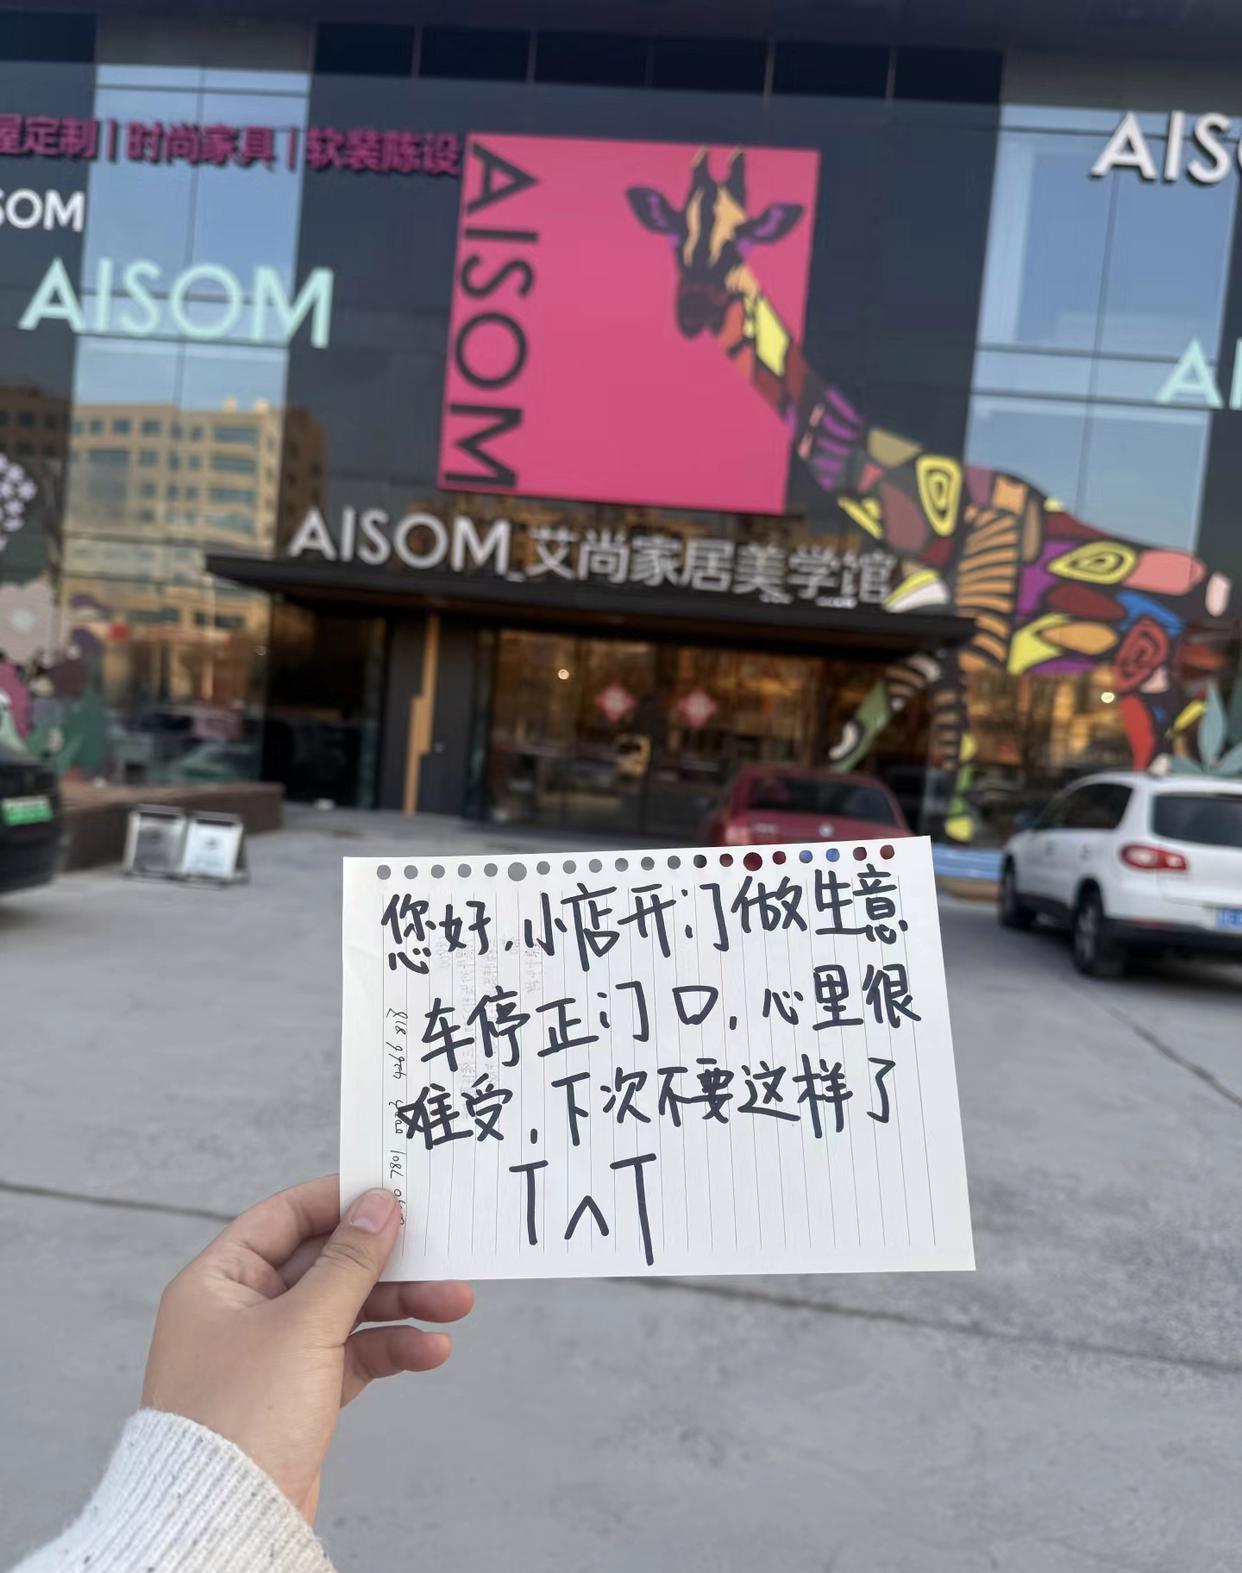 屋定制 | 时尚家具 | 软装陈设
AISO
SOM
AISOM
AISOM
AI
AISOM 艾尚家居美学馆
您好,小店开门做生意
车停正门口,心里很
难受,下次不要这样了
T^T